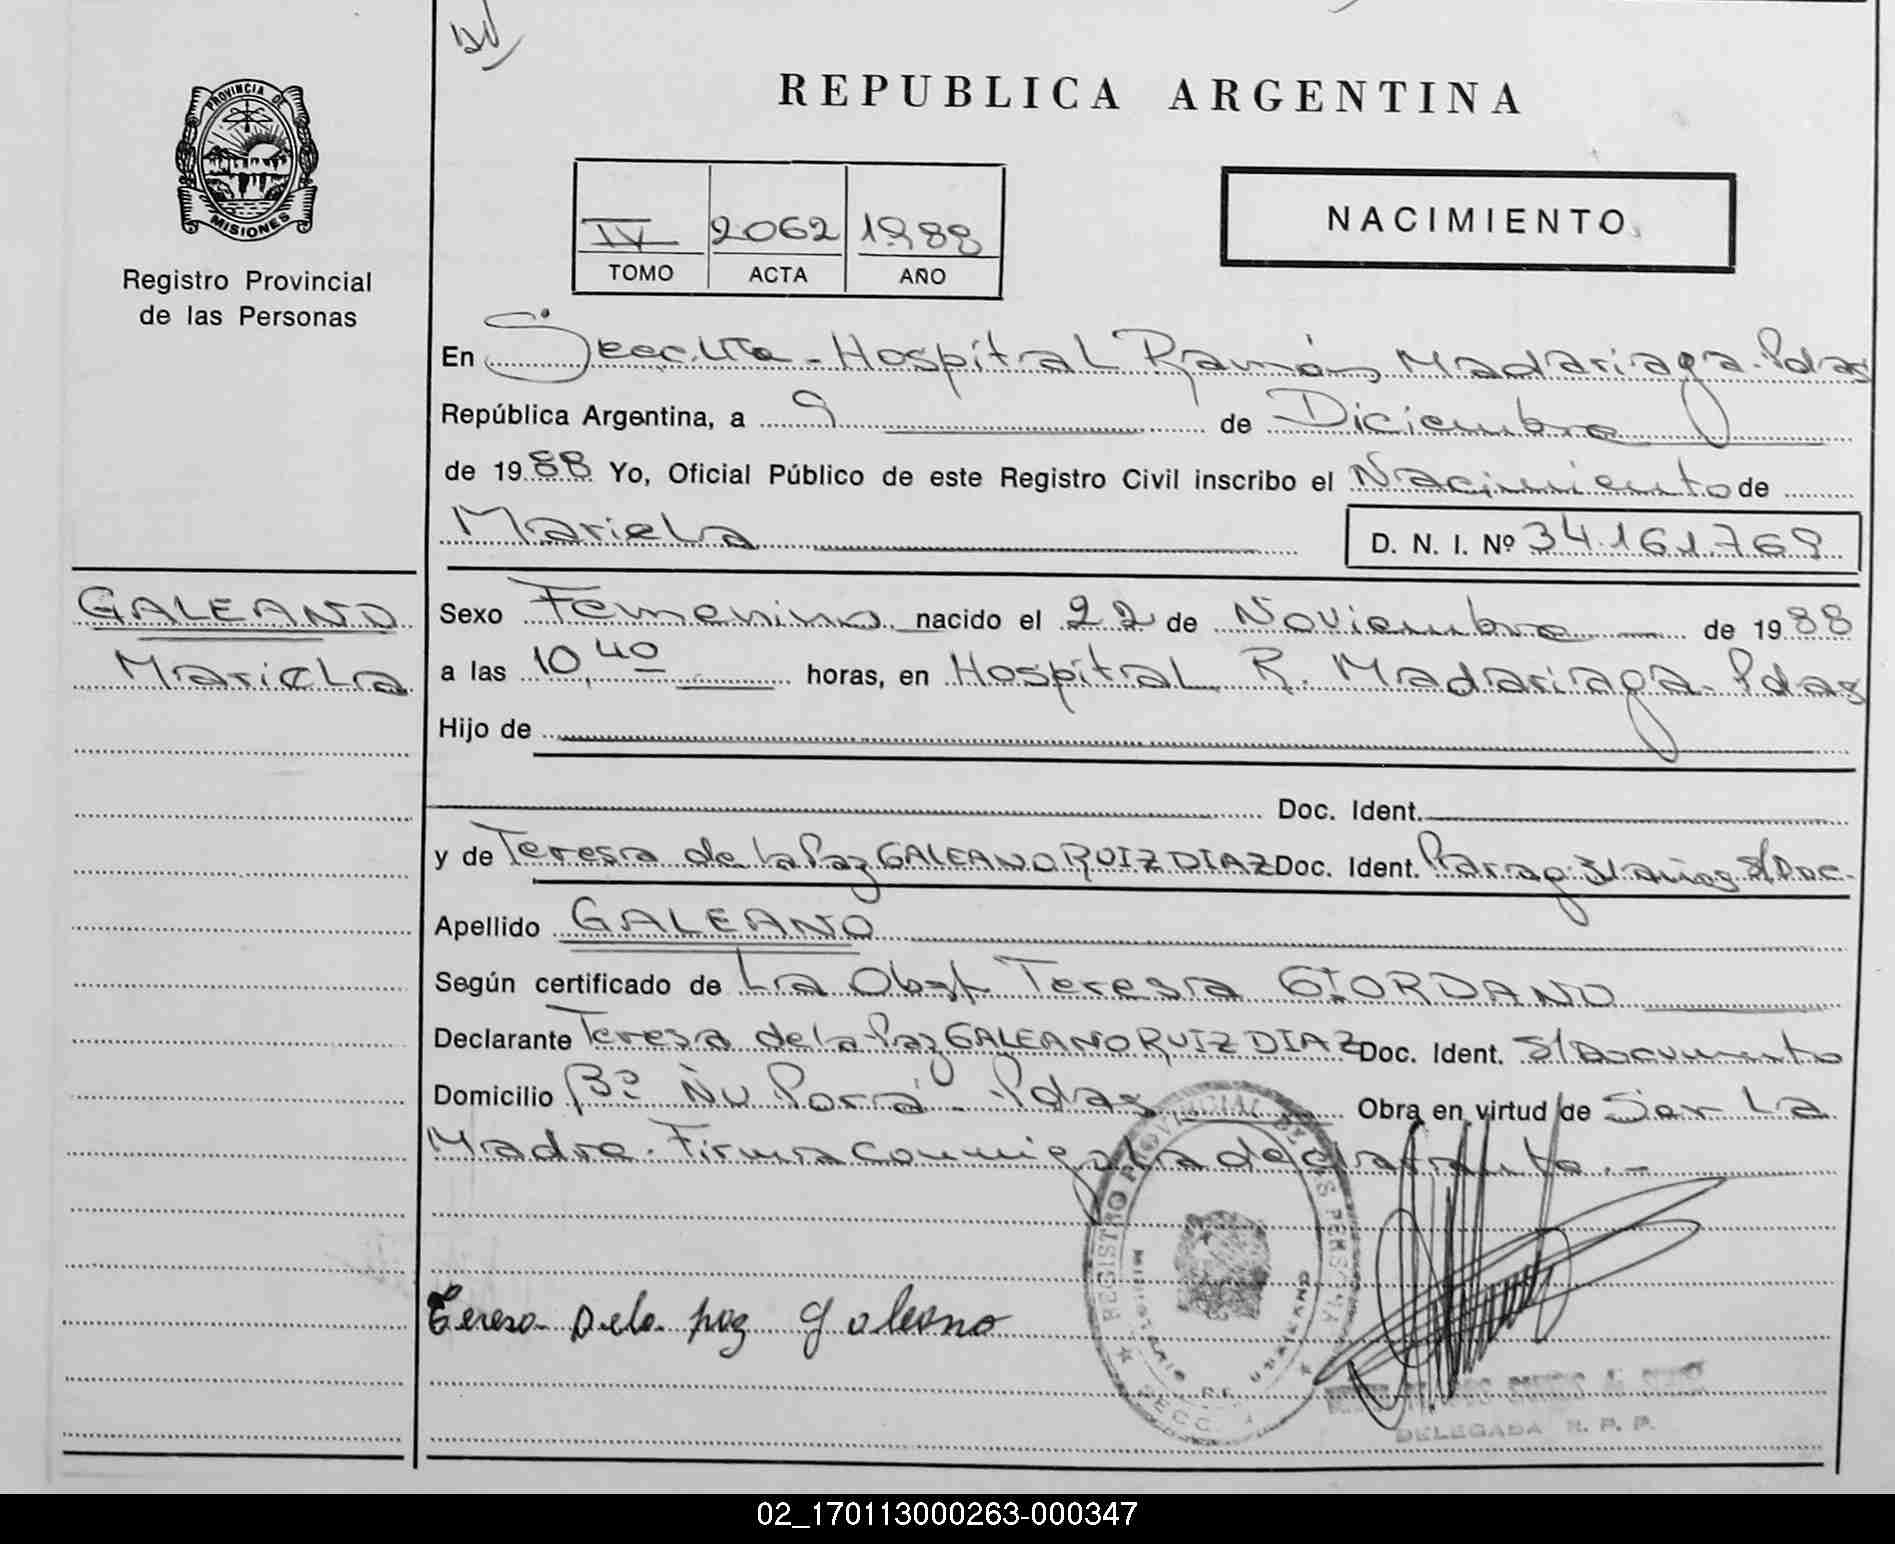 PROVINCIA DE
MISIONES
Registro Provincial
de las Personas
REPUBLICA ARGENTINA
IV 2062 1988
TOMO ACTA AÑO
NACIMIENTO
En Secc. Hospital Ramón Madariaga. Pdas
República Argentina, a 9 de Diciembre
de 1988 Yo, Oficial Público de este Registro Civil inscribo el Nacimiento de
Mariela D. N. I. Nº 34.161.769
GALEANO
Mariela
Sexo Femenino nacido el 22 de Noviembre de 1988
a las 10,40 horas, en Hospital R. Madariaga. Pdas
Hijo de
Doc. Ident.
y de Teresa de la Paz GALEANO RUIZ DIAZ Doc. Ident. Parag 31 años S/Doc.
Apellido GALEANO
Según certificado de La Obst Teresa GIORDANO
Declarante Teresa de la Paz GALEANO RUIZ DIAZ Doc. Ident. S/Documento
Domicilio Bº Ñu Porá - Pdas Obra en virtud de Ser La
Madre. Firma conmigo la declarante.-
Teresa Dela paz galeano
REGISTRO PROVINCIAL DE LAS PERSONAS
SECC.
DELEGADA R. P. P.
02_170113000263-000347